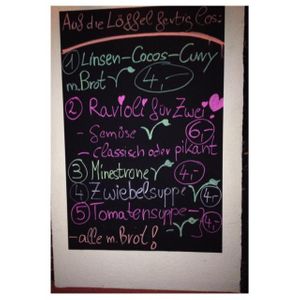 Auf die Löffel fertig los:
① Linsen-Cocos-Curry
m. Brot 4,-
② Ravioli für Zwei
- Gemüse 6,-
- classisch oder pikant
③ Minestrone 4,-
④ Zwiebelsuppe 4,-
⑤ Tomatensuppe - 4,-
- alle m. Brot!